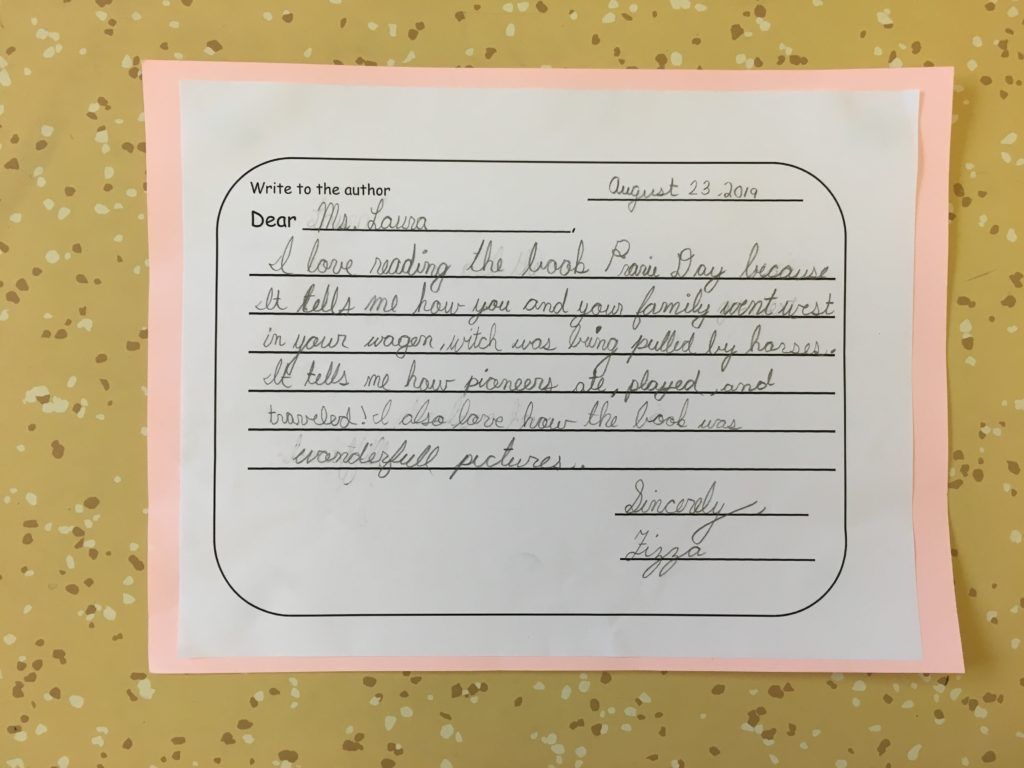 Write to the author
August 23, 2019
Dear Ms. Laura,
I love reading the book Prarie Day because
It tells me how you and your family went west
in your wagen, witch was being pulled by horses.
It tells me how pioneers ate, played, and
traveled! I also love how the book was
wonderfull pictures.
Sincerely,
Fizza